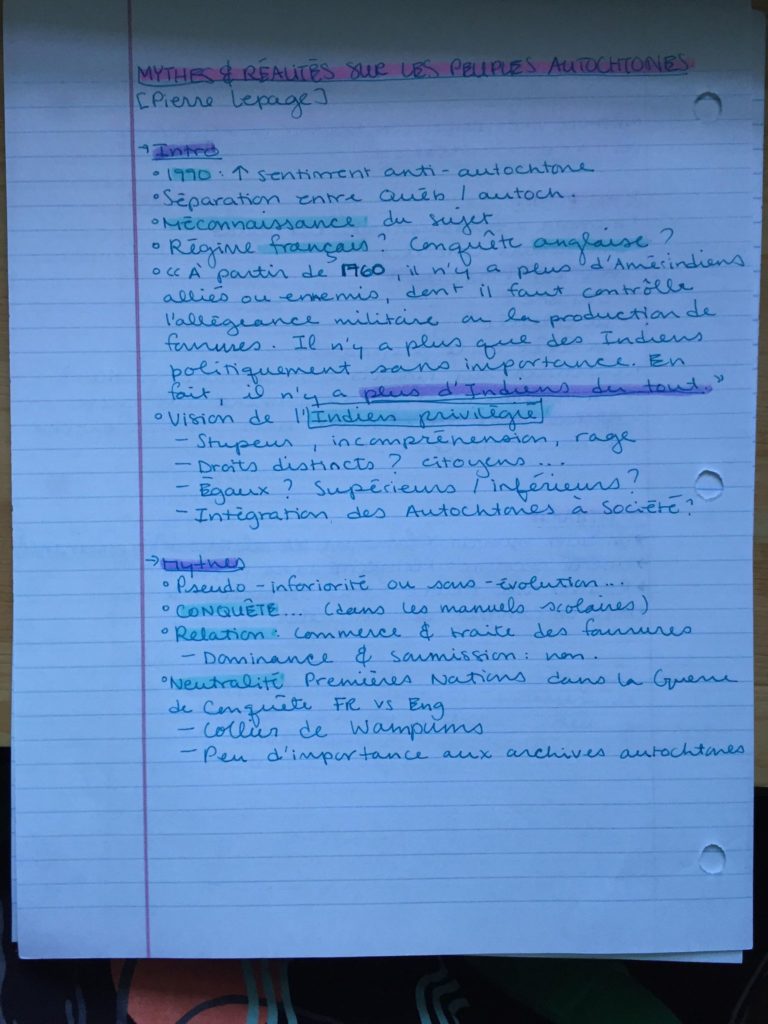 MYTHES & RÉALITÉS SUR LES PEUPLES AUTOCHTONES
[Pierre Lepage]
→ Intro
° 1990 : ↑ sentiment anti-autochtone
° Séparation entre Québ / autoch.
° Méconnaissance du sujet
° Régime français ? Conquête anglaise ?
° « À partir de 1760, il n'y a plus d'Amérindiens
alliés ou ennemis, dont il faut contrôlle
l'allégeance militaire ou la production de
fourrures. Il n'y a plus que des Indiens
politiquement sans importance. En
fait, il n'y a plus d'Indiens du tout. »
° Vision de l'Indien privilégié
- Stupeur, incompréhension, rage
- Droits distincts ? citoyens ...
- Égaux ? Supérieurs / inférieurs ?
- Intégration des Autochtones à Société ?
→ Mythes
° Pseudo-infériorité ou sous-évolution ...
° CONQUÊTE ... (dans les manuels scolaires)
° Relation : commerce & traite des fourrures
- Dominance & soumission : non.
° Neutralité Premières Nations dans la Guerre
de Conquête FR vs Eng
- Collier de Wampums
- Peu d'importance aux archives autochtones